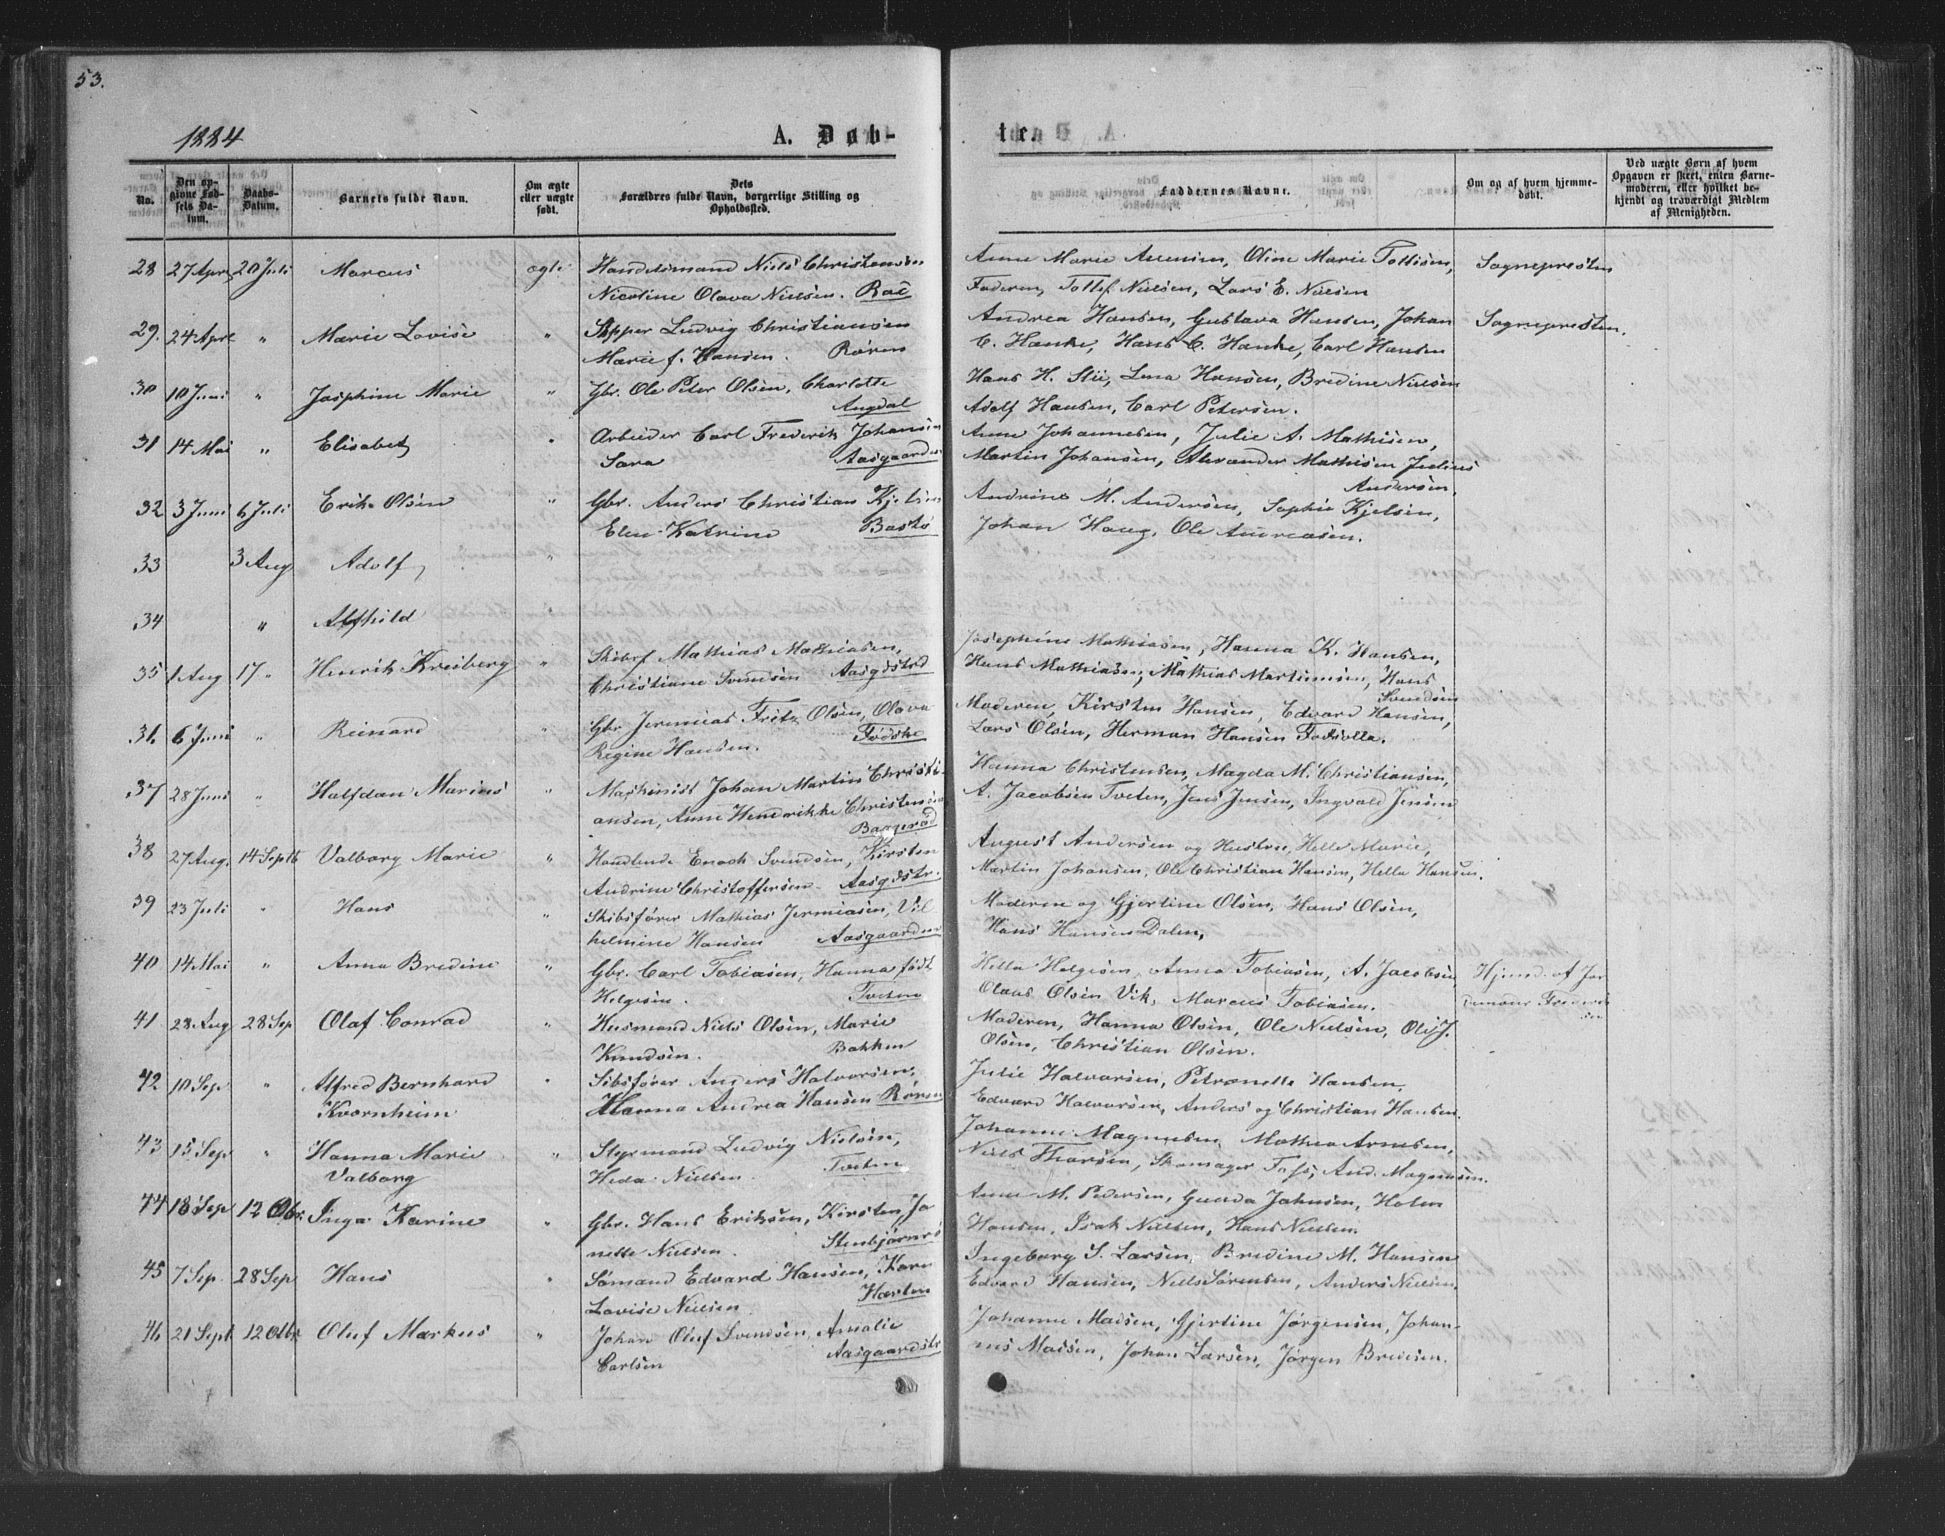 53.
1884
A. Døb-
No.
Den op-
givne Fød-
sels Da-
tum.
Daabs-
Datum.
Barnets fulde Navn.
Om ægte
eller uægte
født.
Dets
Forældres fulde Navn, borgerlige Stilling og
Opholdssted.
28 27 Apr. 20 Juli Marcus ægte Handelsmand Niels Christensen
Nicoline Olava Nielsen. Raé
29. 24 Apr. " Marie Lovise " Skipper Ludvig Christiansen
Marie f. Hansen. Røren
30 10 Juni " Josphine Marie " Gbr. Ole Peter Olsen, Charlotte
Augdal
31 14 Mai " Elisabet " Arbeider Carl Frederik Johansen
Sara Aasgaarden
32 3 Juni 6 Juli Erik Olsen " Gbr. Anders Christian Kjelsen
Elen Katrine Bastø
33 3 Aug Adolf "
34 " Alfhild
35 1 Aug 17 " Henrik Kreiberg " Skibsf Mathias Mathiasen,
Christiane Svendsen Aasgdstrd
36. 6 Juni " Reinard " Gbr Jeremias Fritz Olsen, Olava
Regine Hansen. Fødske
37 28 Juni " Halfdan Marius " Maskinist Johan Martin Christi-
ansen, Anne Hendrikke Christensen
Baggerød
38 27 Aug. 14 Septb Valborg Marie " Handlende Enoch Svendsen, Kirsten
Andrine Christoffersen Aasgdstr.
39 23 Juli " Hans " Skibsfører Mathias Jermiasen, Vil
helmine Hansen Aasgaarden
40 14 Mai " Anna Bredine " Gbr. Carl Tobiasen, Hanna født
Helgesen. Tveten
41 28 Aug 28 Sep Olaf Conrad " Husmand Niels Olsen, Marie
Knudsen. Bakken
42 10 Sep " Alfred Bernhard " Sibsfører Anders Halvorsen,
Kvornheim Hanna Andrea Hansen Røren
43 15 Sep " Hanna Marie " Styrmand Ludvig Nielsen,
Valborg Heda Nielsen Tveten
44 18 Sep 12 Obr. Inga Karine " Gbr. Hans Eriksen, Kirsten Ja
nette Nielsen. Stenbjørnrø
45 7 Sep. 28 Sep Hans " Sømand Edvard Hansen, Karn
Lovise Nielsen Horten
46 21 Sept 12 Otbr Oluf Markus " Johan Oluf Svendsen, Amalie
Carlsen Aasgaardstr
te.
Faddernes Navne.
Om og af hvem hjemme-
døbt.
Ved uægte Børn af hvem
Opgaven er skeet, enten Barne-
moderen, eller hvilket be-
kjendt og troværdigt Medlem
af Menigheden.
Anne Marie Evensen, Oline Marie Tollisen, Sognepresten
Faderen, Tollef Nielsen, Lars E. Nielsen
Andrea Hansen, Gustava Hansen, Johan Sognepresten.
C. Hanke, Hans C. Hanke, Carl Hansen
Hans H. Sti, Lena Hansen, Bredine Nielsen
Adolf Hansen, Carl Petersen.
Anne Johannesen, Julie A. Mathisen,
Martin Johansen, Alexander Mathisen Julius
Andersen.
Andrine M. Andersen, Sophie Kjelsen,
Johan Haug, Ole Andreasen.
Josephine Mathiasen, Hanna K. Hansen,
Hans Mathiasen, Mathias Martinusen, Hans
Svendsen
Moderen, Kirsten Hansen, Edvard Hansen,
Lars Olsen, Herman Hansen Fodsolla.
Hanna Christensen, Magda M. Christiansen,
A. Jacobsen Tveten, Jens Jensen, Ingvald Jensen
August Andersen og Hustru, Helle Marie,
Martin Johansen, Ole Christian Hansen, Hella Hansen.
Moderen og Gjertine Olsen, Hans Olsen,
Hans Hansen Dalen,
Hella Helgesen, Anna Tobiasen, A. Jacobsen Hjemd. af Jor
Olaus Olsen Vik, Marcus Tobiasen. demoder Frederik
sen
Moderen, Hanna Olsen, Ole Nielsen, Ole J.
Olsen, Christian Olsen.
Julie Halvorsen, Petronelle Hansen,
Edvard Halvorsen, Anders og Christian Hansen.
Johanne Magnusen, Mathea Arnesen,
Niels Thorsen, Skomager Tofs, And. Magnusen.
Anne M. Pedersen, Gunda Johnsen, Holm
Hansen, Isak Nielsen, Hans Nielsen.
Ingeborg S. Larsen, Bredine M. Hansen
Edvard Hansen, Niels Sørensen, Anders Nielsen.
Johanne Madsen, Gjertine Jørgensen, Johan-
nes Madsen, Johan Larsen, Jørgen Bredesen.